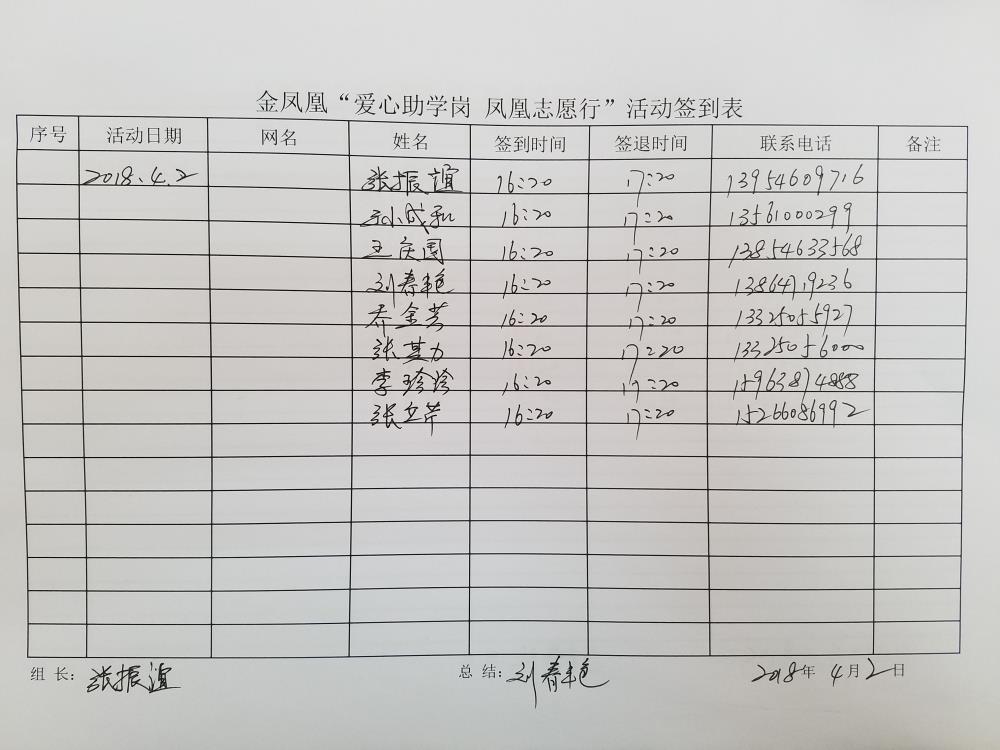 金凤凰“爱心助学岗 凤凰志愿行”活动签到表
序号 活动日期 网名 姓名 签到时间 签退时间 联系电话 备注
2018.4.2 张振谊 16:20 17:20 13954609716
孙成和 16:20 17:20 13561000299
王庆国 16:20 17:20 13854633568
刘春艳 16:20 17:20 13864719236
乔金芳 16:20 17:20 13325055927
张其力 16:20 17:20 13325056000
李珍珍 16:20 17:20 15963874888
张立芹 16:20 17:20 15266086992
组 长：张振谊 总 结：刘春艳 2018年 4月2日